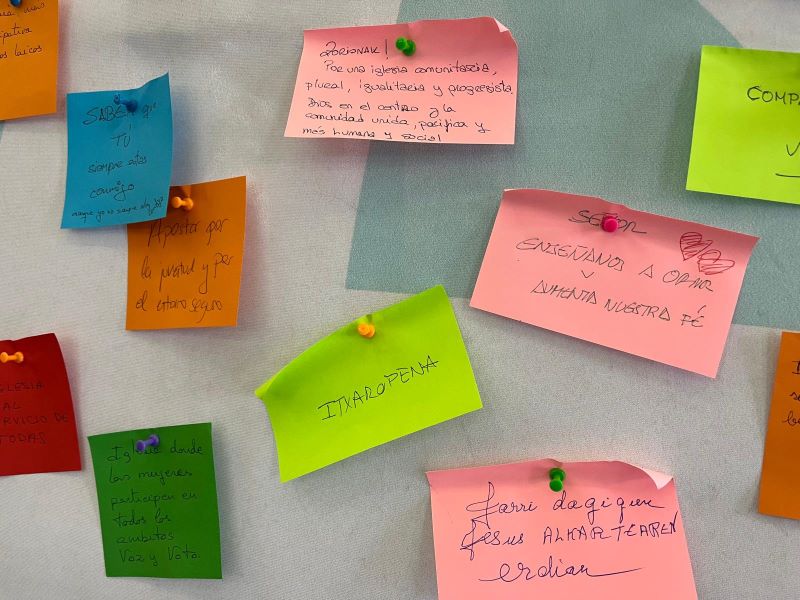 laicos
SABER que
TÚ
siempre estas
conmigo
aunque yo no siempre
Apostar por
la juventud y por
el
IGLESIA
AL
SERVICIO DE
TODAS
Iglesia donde
las mujeres
participen en
todos los
ambitos
Voz y Voto.
ZORIONAK!
Por una iglesia comunitaria,
plural, igualitaria y progresista.
Dios en el centro y la
comunidad unida, pacífica y
más humana y social
ITXAROPENA
SEÑOR
ENSEÑANOS A ORAR
Y
AUMENTA NUESTRA FÉ
Jarri dagigun
Jesus ALKARTEAREN
erdian
COMPA